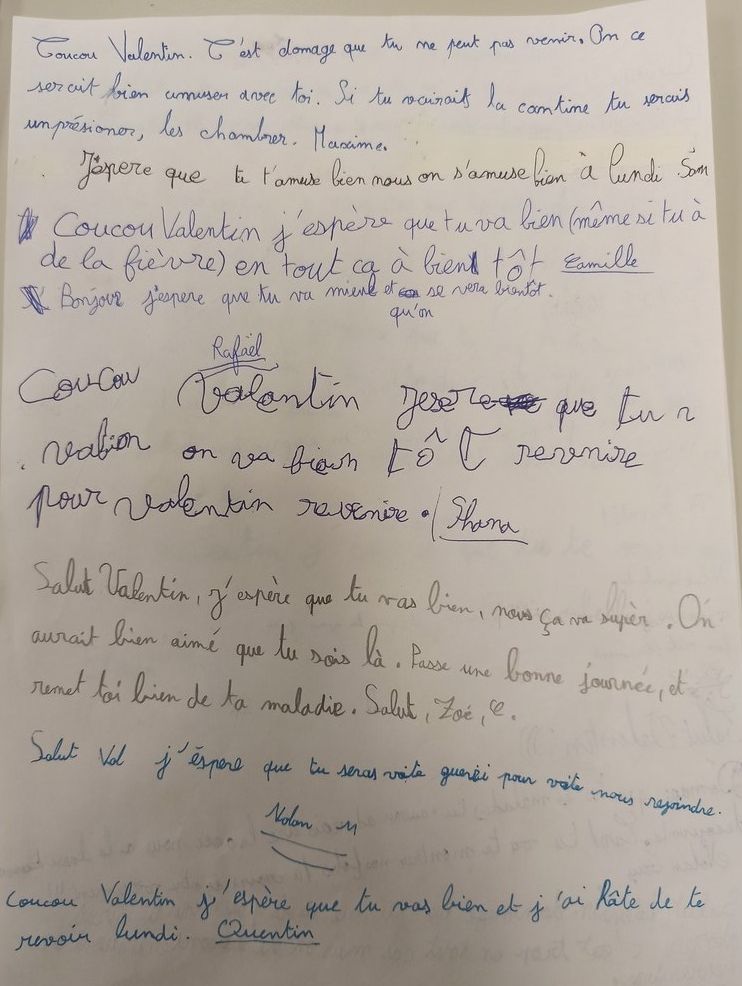 Coucou Valentin. C'est domage que tu ne peut pas venir. On ce
serait bien amuser avec toi. Si tu vairait la cantine tu serais
unprésioner, les chambrer. Maxime.
J'éspere que tu t'amuse bien nous on s'amuse bien à lundi Sam
Coucou Valentin j'espère que tu va bien (même si tu à
de la fièvre) en tout ca à bien tôt Camille
Bonjour j'espere que tu va mieux et se vera bientôt.
qu'on
Rafaël
Coucou Valentin jesere que tu
va bien on va bien tôt revenire
pour valentin revenire. Shana
Salut Valentin, j'espère que tu vas bien, nous ça va supèr. On
aurait bien aimé que tu sois là. Passe une bonne journée, et
remet toi bien de ta maladie. Salut, Zoé, C.
Salut Val j'éspere que tu seras vite gueri pour vite nous rejoindre.
Nolan M
Coucou Valentin j'espère que tu vas bien et j'ai hâte de te
revoir lundi. Quentin